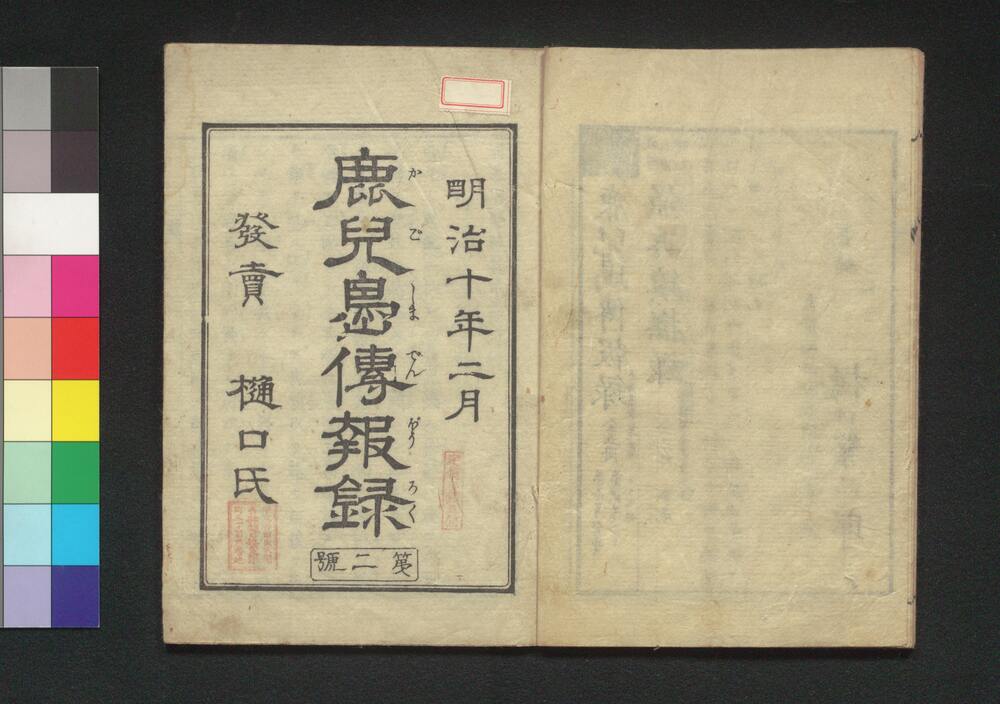 明治十年二月
鹿兒島傳報録
かごしまでんぱうろく
發賣 樋口氏
第二號